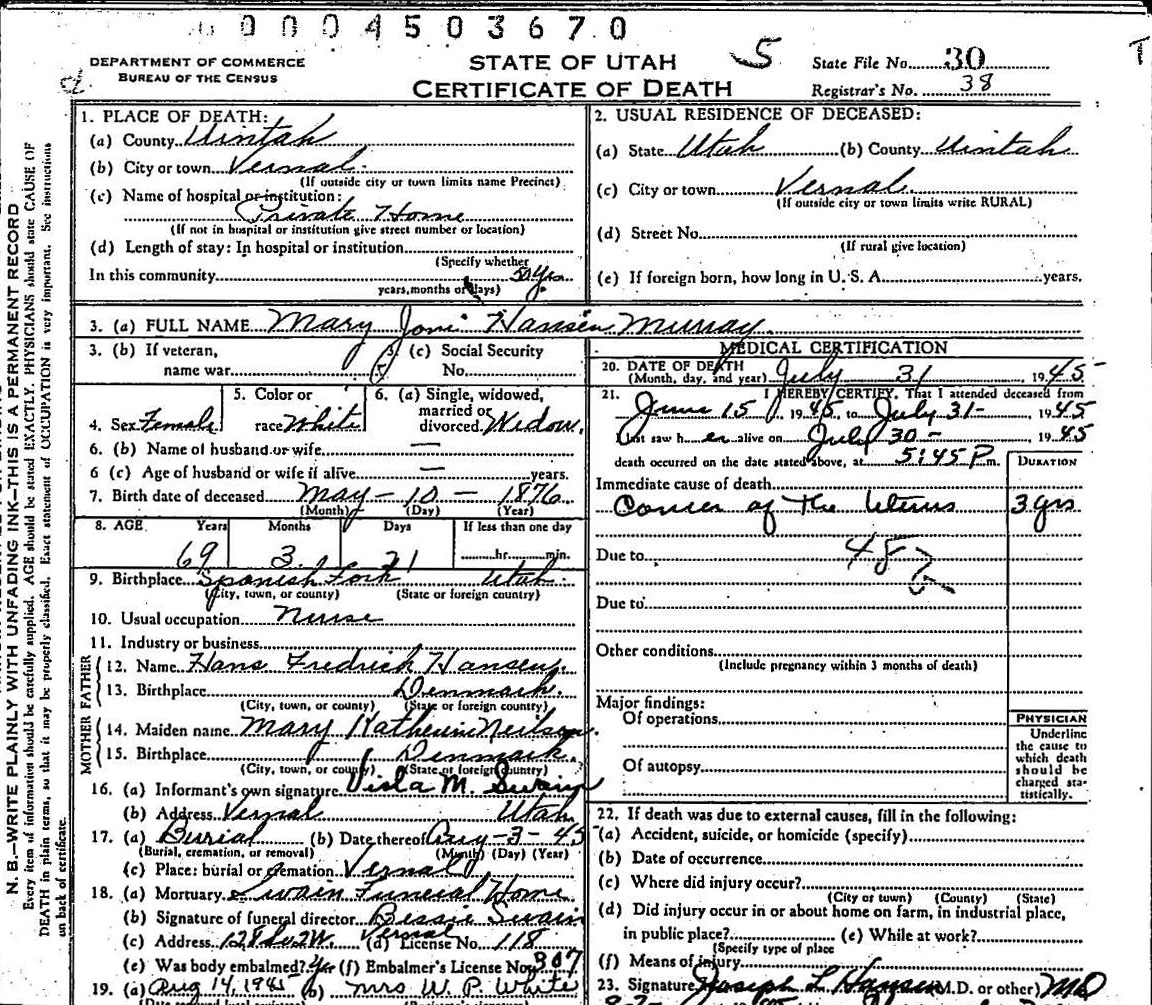 00004503670
DEPARTMENT OF COMMERCE
BUREAU OF THE CENSUS
STATE OF UTAH
CERTIFICATE OF DEATH
5
State File No. 30
Registrar's No. 38
1. PLACE OF DEATH:
(a) County Uintah
(b) City or town Vernal
(If outside city or town limits name Precinct)
(c) Name of hospital or institution:
Private Home
(If not in hospital or institution give street number or location)
(d) Length of stay: In hospital or institution
(Specify whether
In this community 50 yrs
years, months or days)
2. USUAL RESIDENCE OF DECEASED:
(a) State Utah (b) County Uintah
(c) City or town Vernal
(If outside city or town limits write RURAL)
(d) Street No.
(If rural give location)
(e) If foreign born, how long in U. S. A. years.
3. (a) FULL NAME Mary Joni Hansen Murray
3. (b) If veteran,
name war
3. (c) Social Security
No.
4. Sex Female
5. Color or
race White
6. (a) Single, widowed,
married or
divorced. Widow.
6. (b) Name of husband or wife —
6 (c) Age of husband or wife if alive — years.
7. Birth date of deceased May - 10 - 1876
(Month) (Day) (Year)
8. AGE Years Months Days If less than one day
69 3 21 hr. min.
9. Birthplace Spanish Fork Utah
(City, town, or county) (State or foreign country)
10. Usual occupation Nurse
11. Industry or business
FATHER
12. Name Hans Fredrick Hansen
13. Birthplace Denmark
(City, town, or county) (State or foreign country)
MOTHER
14. Maiden name Mary Katherin Neilson
15. Birthplace Denmark
(City, town, or county) (State or foreign country)
16. (a) Informant's own signature Viola M. Swain
(b) Address Vernal Utah
17. (a) Burial (b) Date thereof Aug - 3 - 45
(Burial, cremation, or removal) (Month) (Day) (Year)
(c) Place: burial or cremation Vernal
18. (a) Mortuary Swain Funeral Home
(b) Signature of funeral director Bessie Swain
(c) Address 128 So 2 W. Vernal (d) License No. 118
(e) Was body embalmed? Yes (f) Embalmer's License No. 307
19. (a) Aug 14, 1945 (b) Mrs W. P. White
MEDICAL CERTIFICATION
20. DATE OF DEATH
(Month, day, and year) July 31 1945
21. I HEREBY CERTIFY, That I attended deceased from
June 15, 1945, to July 31 - 1945
I last saw her alive on July 30 - 1945
death occurred on the date stated above, at 5:45 P m.
DURATION
Immediate cause of death
Cancer of the Uterus 3 yrs
Due to 48
Due to
Other conditions
(Include pregnancy within 3 months of death)
Major findings:
Of operations
Of autopsy
PHYSICIAN
Underline
the cause to
which death
should be
charged sta-
tistically.
22. If death was due to external causes, fill in the following:
(a) Accident, suicide, or homicide (specify)
(b) Date of occurrence
(c) Where did injury occur?
(City or town) (County) (State)
(d) Did injury occur in or about home on farm, in industrial place,
in public place? (e) While at work?
(Specify type of place
(f) Means of injury
23. Signature Joseph L Hansen (M.D. or other) MD
N. B.—WRITE PLAINLY WITH UNFADING INK—THIS IS A PERMANENT RECORD
Every item of information should be carefully supplied. AGE should be stated EXACTLY. PHYSICIANS should state CAUSE OF
DEATH in plain terms, so that it may be properly classified. Exact statement of OCCUPATION is very important. See instructions
on back of certificate.